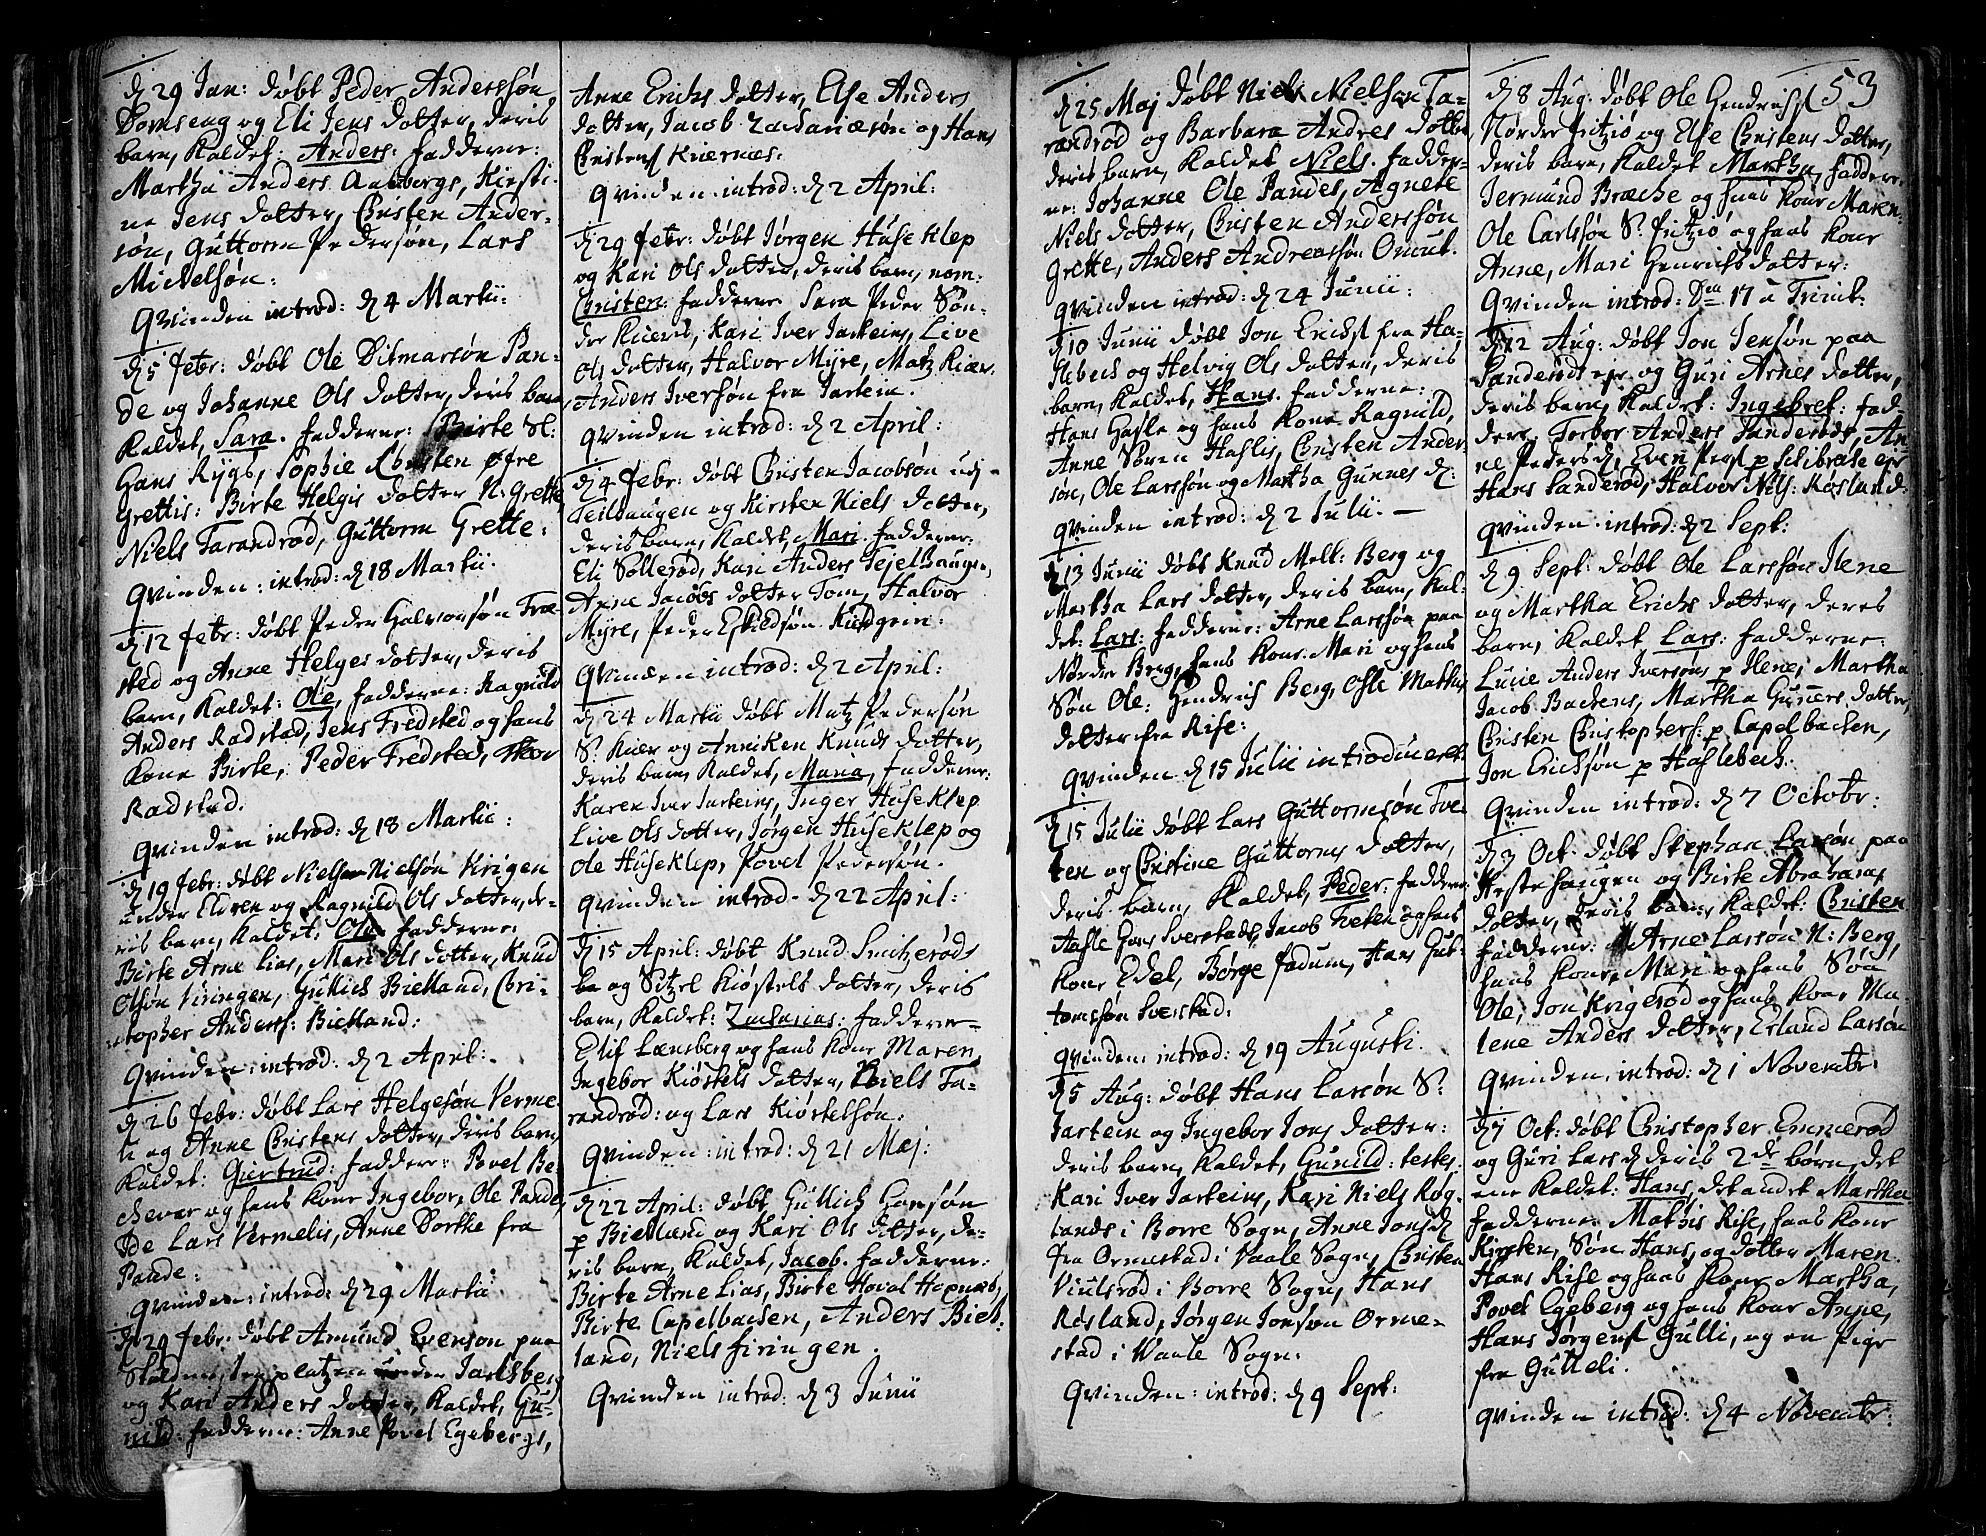 d 29 Jan: døbt Peder Anderssøn
Domseng og Eli Jens dotter, deris
barn, Kaldet: Anders: fadderne:
Martha Anders Aasbergs, Kiersti-
ne Jens dotter, Christen Ander-
søn, Guttorm Pedersøn, Lars
Mickelsøn:
Qvinden introd: d 4 Martii:
d 5 febr: døbt Ole Ditmarsøn Pan-
de og Johanne Ols dotter, deris barn
Kaldet, Sara. fadderne: Birte Sl:
Hans Rygs, Sophie Christen øfre
Grettis: Birte Helgis dotter N: Grette
Niels Tarandrød, Guttorm Grette:
Qvinden: introd: d 18 Martii.
d 12 febr: døbt Peder Halvorsøn Fræ
sted og Anne Helges dotter, deris
barn, Kaldet: Ole, fadderne: Ragnild
Anders Radstad, Jens Fredsted og hans
Kone Birte, Peder Fredsted,
Radstad.
Qvinden introd: d 18 Martii:
d 19 febr: døbt Niels Nielsøn Krigen
under Eldren og Ragnild Ols dotter, de-
ris barn, Kaldet: Ole fadderne:
Birte Arne Lias, Mari Ols dotter, Knud
Olsøn Viringen, Gullich Bielland, Chri-
stopher Anderss: Bielland:
Qvinden: introd: d 2 April:
d 26 febr: døbt Lars Helgesøn Verme-
li og Anne Christens dotter, deris barn
Kaldet: Giertrud: fadderne: Povel Be-
chevar og hans Kone Ingebor, Ole Pande,
Ide Lars Vermelis, Anne Dorthe fra
Pande:
Qvinden: introd: d 29 Martii
d 29 febr: døbt Amund Evenson paa
platzen under Jarlsberg
og Kari Anders dotter, Kaldet, Gu-
nild: fadderne: Anne Povel Egebergs,
Anne Erichs dotter, Else Anders
dotter, Jacob Zachariæsøn og Hans
Christens Kiernæs:
Qvinden introd: d 2 April:
d 29 febr: døbt Jørgen Huseklep
og Kari Ols dotter, deris barn, nom:
Christen: fadderne Sara Peder Søn-
dre Kiærs, Kari Iver Jarteins, Live
Ols dotter, Halvor Myre, Matz Kiær.
Anders Iversøn fra Jartein.
Qvinden introd: d 2 April:
d 4 febr: døbt Christen Jacobsøn udj
Teilhaugen og Kirsten Niels dotter,
deris barn, Kaldet, Mari. fadderne:
Eli Sollerød, Kari Anders Tejelhaugen,
Anne Jacobs dotter Tom, Halvor
Myre, Peder Eskildsøn
Qvinden introd: d 2 April:
d 24 Martii døbt Matz Pedersøn
S. Kier og Anniken Knuds dotter,
deris barn, Kaldet, Maria, fadderne:
Karen Iver Jarteins, Inger Huseklep
Live Ols dotter, Jørgen Huseklep og
Ole Huseklep, Povel Pedersøn.
Qvinden introd. d 22 April:
d 15 April: døbt Knud Smitzerød
og Sitzel Kiøstels dotter, deris
barn, Kaldet: Zacharias: fadderne
Elif Lænsberg og hans Kone Maren
Ingebor Kiøstels dotter, Niels Ta-
randrød: og Lars Kiøstelsøn:
Qvinden: introd: d 21 Maj:
d 22 April: døbt Gullich Hansøn
p Bielland og Kari Ols dotter, de-
ris barn, Kaldet, Jacob. fadderne:
Birte Arne Lias, Birte Hoval Hopnes,
Birte Capelbachen, Anders Biel-
land, Niels firingen.
Qvinden introd: d 3 Junii
53
d 25 Maj døbt Niels Nielsøn Ta-
randrød og Barbara Andres dotter
deris barn, Kaldet Niels. fadder-
ne: Johanne Ole Pandes, Agnete
Niels dotter, Christen Anderssøn
Grette, Anders Andreasøn
Qvinden introd: d 24 Junii:
d 10 Junii døbt Jon Erichs fra Ha-
slebech og Helvig Ols dotter, deris
barn, Kaldet, Hans. fadderne:
Hans Hasle og hans Kone Ragnild,
Anne Søren Haslis, Christen Ander-
søn, Ole Larssøn og Martha Gunnes d:
Qvinden introd: d 2 Julii. —
d 13 Junii døbt Knud Mell: Berg og
Martha Lars dotter, deris barn, Kal-
det: Lars: fadderne: Arne Larssøn paa
Nordre Berg, hans Kone Mari og hans
Søn Ole: Hendrich Berg, Osle Mathis
dotter fra Rise:
Qvinden d 15 Julii introduceret
d 15 Julii døbt Lars Guttormsøn Tve-
ten og Christine Guttorms dotter,
deris barn, Kaldet, Peder: fadderne
Aasle Hans Sverstads, Jacob Tveten og hans
Kone Edel, Børge fadum, Hans Gut-
tomsøn Sverstad:
Qvinden: introd: d 19 Augusti.
d 5 Aug: døbt Hans Larsøn S.
Jartein og Ingebor Jons dotter:
deris barn, Kaldet, Gunild: testes:
Kari Iver Jarteins, Kari Niels Røg-
lands i Borre Sogn, Anne Jons d
fra Ormestad i Vaale Sogn, Christen
Viulsrød i Borre Sogn, Hans
Røsland, Jørgen Jonsøn Orme-
stad i Vaale Sogn:
Qvinden: introd: d 9 Sept:
d 8 Aug: døbt Ole Hendrichs
Nørdre fritziø og Else Christens dotter,
deris barn, Kaldet Martha, fadderne
Jermund Bræche og hans Kone Maren.
Ole Carlsøn S. fritziø og hans Kone
Anne, Mari Henrichs dotter:
Qvinden introd: Dm 17 à Trinit.
d 12 Aug: døbt Jon Jensøn paa
Sanderød eje og Guri Arnes dotter,
deris barn, Kaldet: Ingebret: fad-
dere, Torbor Anders Sanderøds, An-
ne Peders d, Even Pers p Schibræke eje
Hans Sanderød, Halvor Nils: Røsland.
Qvinden introd: d 2 Sept:
d 9 Sept: døbt Ole Larssøn Ilene
og Martha Erichs dotter, deres
barn, Kaldet Lars: fadderne:
Lucie Anders Iversøns p Ilene, Martha
Jacob Bachens, Martha Gunners dotter,
Christen Christophers: p Capelbachen,
Jon Erichsøn p Haslebech:
Qvinden introd: d 7 Octobr:
d 3 Oct: døbt Stephan Larsøn paa
Hestehaugen og Birte Abrahams
dotter, deris barn, Kaldet: Christen
fadderne: Arne Larssøn N: Berg,
hans Kone, Mari og hans Søn
Ole, Jon Krigerød og hans Kone Ma-
lene Anders dotter, Erland Larsøn
Qvinden, introd: d 1 Novembr:
d 7 Oct: døbt Christopher Emmerød
og Guri Lars d deris 2de børn, det
ene Kaldet: Hans, det andet Martha
fadderne: Mathis Rise, hans Kone
Kirsten, Søn Hans, og dotter Maren.
Hans Rise og hans Kone Martha,
Povel Egeberg og hans Kone Anne,
Hans Jørgens Gulli, og en Pige
fra Gutteli.
Qvinden introd: d 4 Novembr: